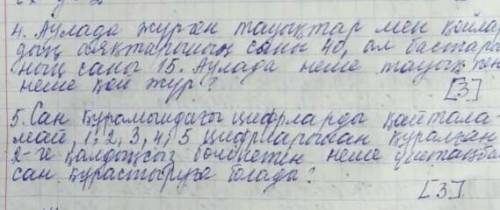 4. Аулада жүрген тауықтар мен қойлар
дың аяқтарының саны 40, ал бастары
ның саны 15. Аулада неше тауық
неше қой жүр?
[3]
5. Сан құрамындағы цифрларды қайтала-
май, 1, 2, 3, 4, 5 цифрларынан құралған
2-ге қалдықсыз бөлінетен неше үштаңба
сан құрастыруға болады?
[3]